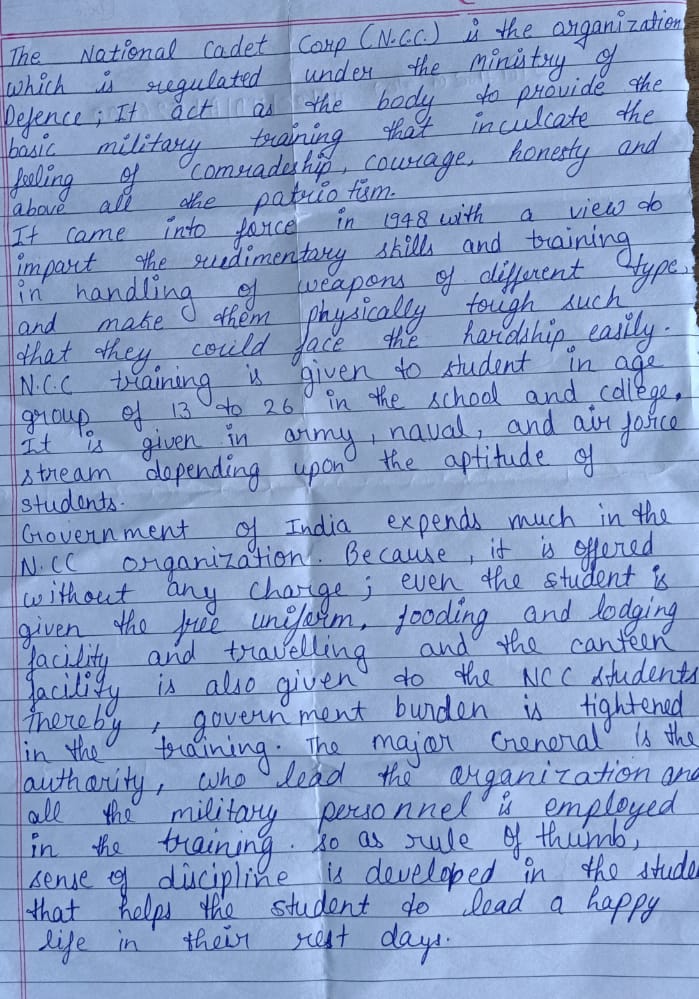 The National Cadet Corp (N.C.C.) is the organization
which is regulated under the Ministry of
Defence; It act as the body to provide the
basic military training that inculcate the
feeling of comradeship, courage, honesty and
above all the patriotism.
It came into force in 1948 with a view to
impart the rudimentary skills and training
in handling of weapons of different type,
and make them physically tough such
that they could face the hardship easily.
N.C.C training is given to student in age
group of 13 to 26 in the school and college.
It is given in army, naval, and air force
stream depending upon the aptitude of
students.
Government of India expends much in the
N.CC organization. Because, it is offered
without any charge; even the student is
given the free uniform, fooding and lodging
facility and travelling and the canteen
facility is also given to the NCC students
Thereby, government burden is tightened
in the training. The major General is the
authority, who lead the organization and
all the military personnel is employed
in the training. So as rule of thumb,
sense of discipline is developed in the stude
that helps the student to lead a happy
life in their rest days.